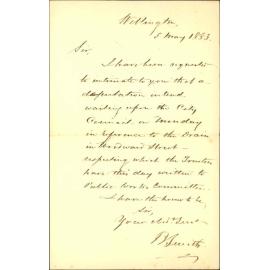 Wellington,
5 May 1883.
Sir
I have been requested
to intimate to you that a
deputation intend
waiting upon the City
Council on Monday
in reference to the Drain
in Woodward Street
respecting which the
have this day written to
Public Works Committee.
I have the honor to be,
Sir,
Your obdt Servt
Smith